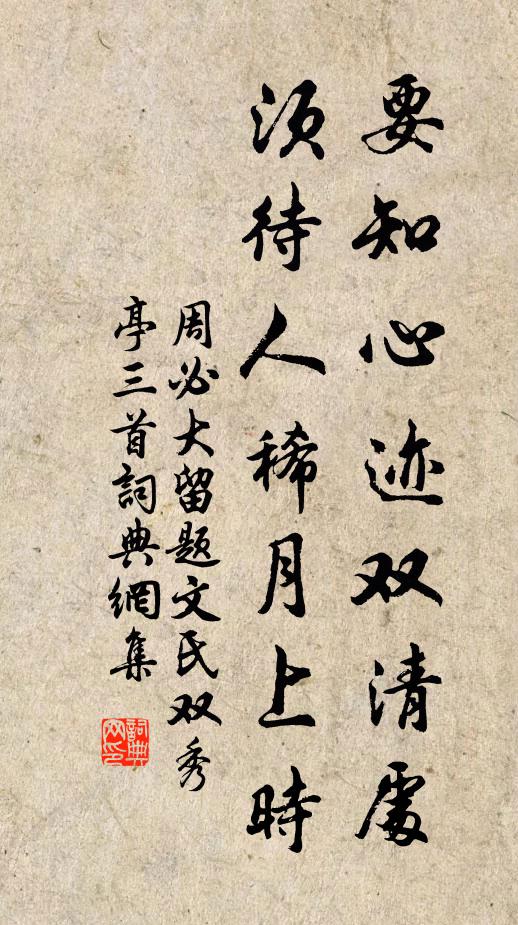 要知心迹双清處
須待人稀月上時
周必大留题文氏双秀
亭三首詞典網集
詞典网印